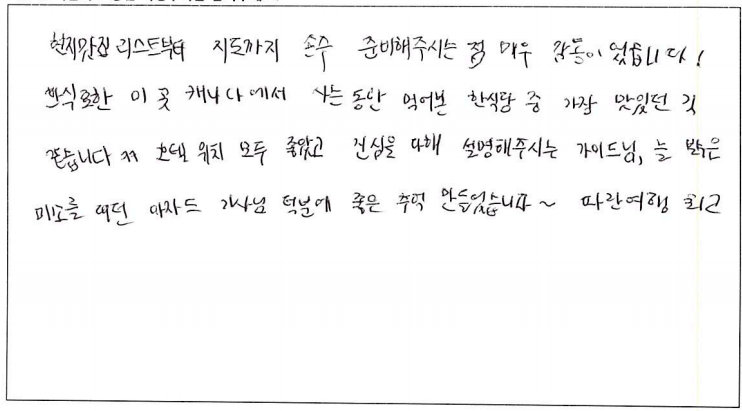 현지맛집 리스트부터 지도까지 손수 준비해주시는 점 매우 감동이었습니다!
한식로한 이 곳 캐나다에서 사는동안 먹어본 한식당 중 가장 맛있던 것
같습니다 ㅉ 호텔 위치 모두 좋았고 진심을 다해 설명해주시는 가이드님, 늘 밝은
미소를 띠던 아자드 기사님 덕분에 좋은 추억 만들었습니다~ 파란여행 최고